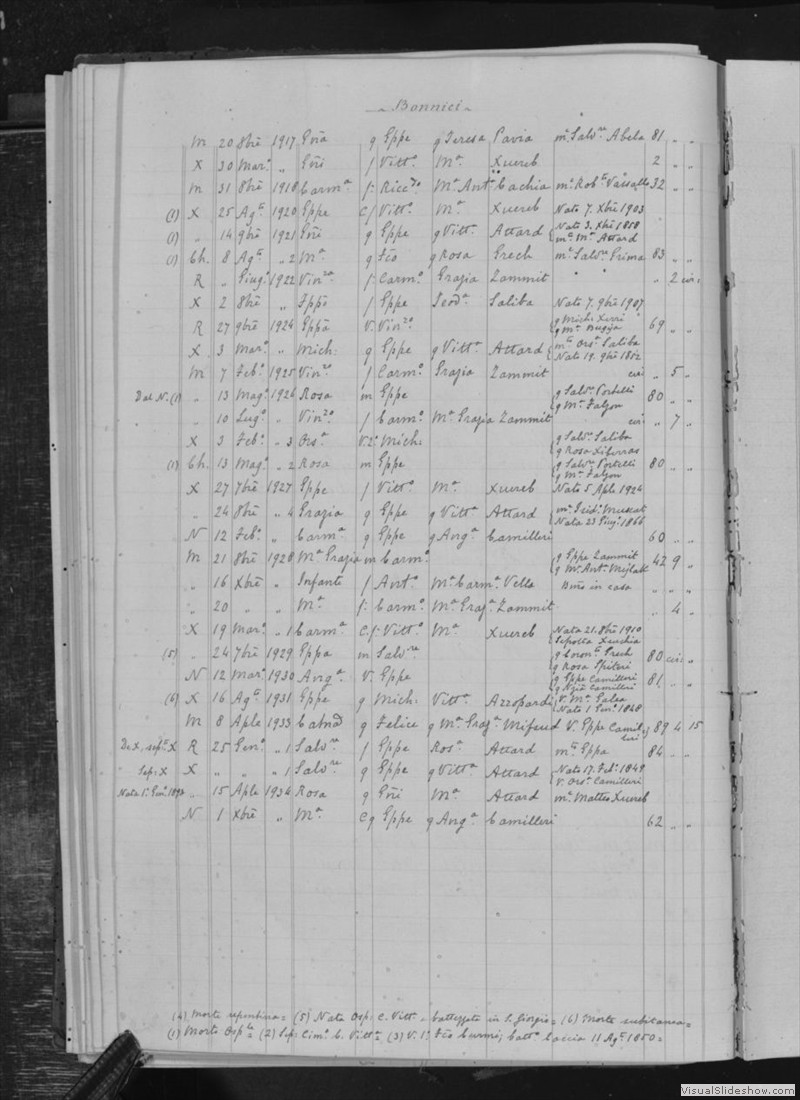 Bonnici
m 20 8bre 1917 Gña g Eppe g Teresa Pavia mª Salvre Abela 81 " "
X 30 Marº " Gñi f Vittº Mª Xuereb 2 " "
m 31 8bre 1918 Carmª f: Riccdo Mª Antª Cachia mª Robtº Vassallo 32 " "
(1) X 25 Agto 1920 Eppe C/ Vittº Mª Xuereb Nato 7. Xbre 1903
(1) " 14 9bre 1921 Gñi g Eppe g Vittª Attard Nato 3. Xbre 1858
mto Mª Attard
(1) Ch. 8 Agto " 2 Mª g Fco g Rosa Grech mª Salvre Grima 83 " "
R " Giugº 1922 Vinzo f: Carmº Grazia Zammit " " " 2 cir:
X 2 8bre " f Eppe Teodª Saliba Nato 7. 9bre 1907
R 27 9bre 1924 Eppa V. Vinzo g Mich:
g Mª Bugeja 69 " "
X 3 Marº " Mich: g Eppe g Vittª Attard mto Orsª Saliba
Nato 19. 9bre 1852
m 7 Febº 1925 Vinzo f Carmº Grazia Zammit cir: " 5 "
Dal N. (1 " 13 Magº 1926 Rosa m Eppe g Salvre Portelli
g Mª Falzon 80 " "
" 10 Lugº " Vinzo f Carmº Mª Grazia Zammit cir: " 7 "
X 3 Febº " 3 Orsª V. 2. Mich: g Salvre Saliba
g Rosa Xiberras
(1) Ch. 13 Magº " 2 Rosa m Eppe g Salvre Portelli
g Mª Falzon 80 " "
X 27 7bre 1927 Eppe f Vittº Mª Xuereb Nato 5 Aple 1924
" 24 8bre " 4 Grazia g Eppe g Vittª Attard Muscat
Nata 23 Giugº 1866
N 12 Febº " Carmª g Eppe g Angª Camilleri 60 " "
m 21 8bre 1928 Mª Grazia m Carmº g Eppe Zammit
g Mª Antª Mejlak 42 9 "
" 16 Xbre " Infante f Antº Mª Carmª Vella in casa
" 20 " " Mª f: Carmº Mª Grazª Zammit " 4 "
X 19 Marº " 1 Carmª C. f: Vittº Mª Xuereb Nata 21. 8bre 1910
Sepolta Xeuchia
(5) " 24 7bre 1929 Eppa m Salvre g Coronto Grech
g Rosa Spiteri 80 cir: "
N 12 Marº 1930 Angª V. Eppe g Eppe Camilleri
Camilleri 81 " "
(6) X 16 Agto 1931 Eppe g Mich: Vittª Azzopardi V. Mª Galea
Nato 1 Genº 1848
m 8 Aple 1933 g Felice g Mª Grazª Mifsud V. Eppe Camil
leri 89 4 15
De X, sepº X R 25 Genº " 1 Salvre f Eppe Rosª Attard mto Eppa 84 " "
Sep: X X " " " 1 Salvre g Eppe g Vittª Attard Nato 17. Febº 1849
V. Orsª Camilleri
Nata 1º Genº 1892 " 15 Aple 1934 Rosa g Gñi Mª Attard mª Matteo Xuereb
N 1 Xbre " Mª C g Eppe g Angª Camilleri 62 " "
(4) Morte repentina = (5) Nata Osp: C. Vittª - battezzata in S. Giorgio = (6) Morte subitanea =
(1) Morto Osple = (2) Sep: Cimº C. Vittª (3) V. 1º: Fco Curmi; Battº Caccia 11 Agto 1850 =
VisualSlideshow.com